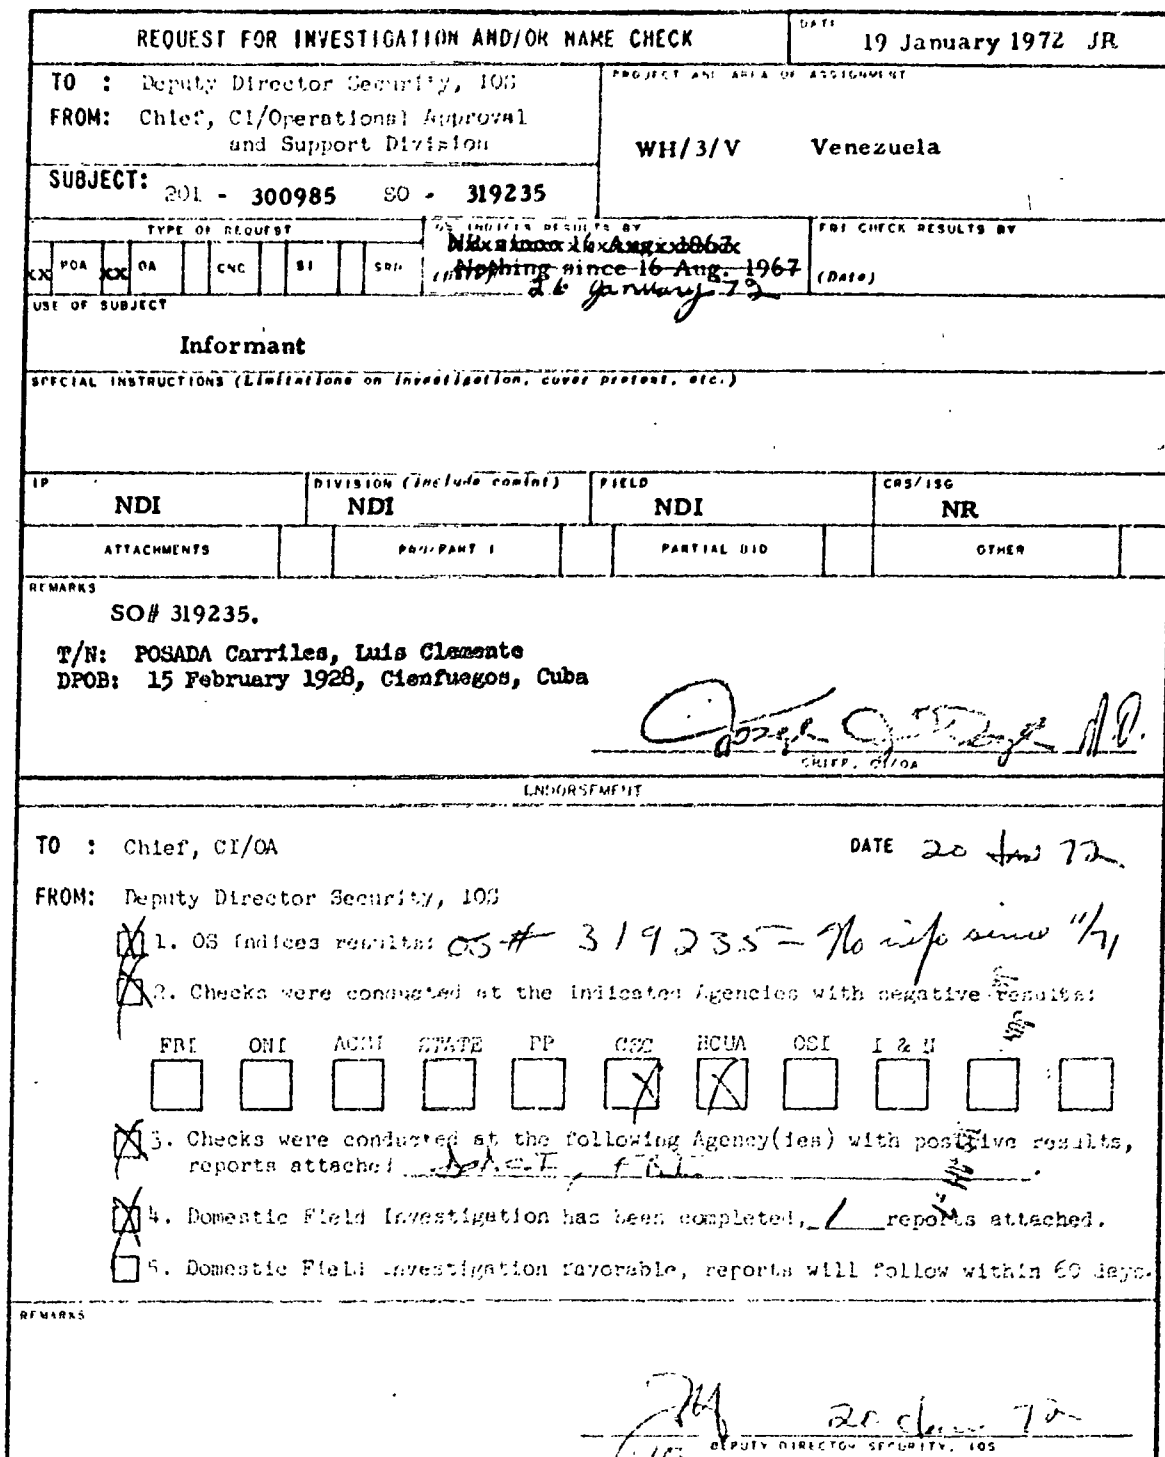 REQUEST FOR INVESTIGATION AND/OR NAME CHECK
DATE
19 January 1972 JR
TO : Deputy Director Security, IOS
FROM: Chief, CI/Operational Approval
and Support Division
PROJECT AND AREA OF ASSIGNMENT
WH/3/V Venezuela
SUBJECT: 201 - 300985 SO - 319235
TYPE OF REQUEST
xx POA xx OA CNC SI SRD
OS INDICES RESULTS BY
NR since 16 Aug. 1967
Nothing since 16 Aug. 1967
(Date)
26 January 72
FBI CHECK RESULTS BY
(Date)
USE OF SUBJECT
Informant
SPECIAL INSTRUCTIONS (Limitations on investigation, cover pretext, etc.)
IP
NDI
DIVISION (include comint)
NDI
FIELD
NDI
CRS/ISG
NR
ATTACHMENTS PRQ/PART I PARTIAL BIO OTHER
REMARKS
SO# 319235.
T/N: POSADA Carriles, Luis Clemente
DPOB: 15 February 1928, Cienfuegos, Cuba
CHIEF, CI/OA
ENDORSEMENT
TO : Chief, CI/OA
DATE 20 Jan 72
FROM: Deputy Director Security, IOS
1. OS Indices results: OS # 319235 - No info since 11/71
2. Checks were conducted at the indicated Agencies with negative results:
FBI ONI ACSI STATE PP CSC HCUA OSI I & N
3. Checks were conducted at the following Agency(ies) with positive results,
reports attached
4. Domestic Field Investigation has been completed, 1 reports attached.
5. Domestic Field Investigation favorable, reports will follow within 60 days.
REMARKS
20 Jan 72
DEPUTY DIRECTOR SECURITY, IOS